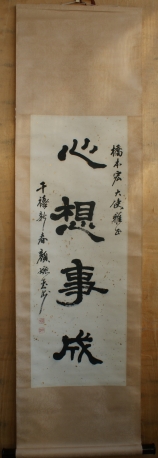 橋本宏大使雅正
心想事成
千禧新春顏